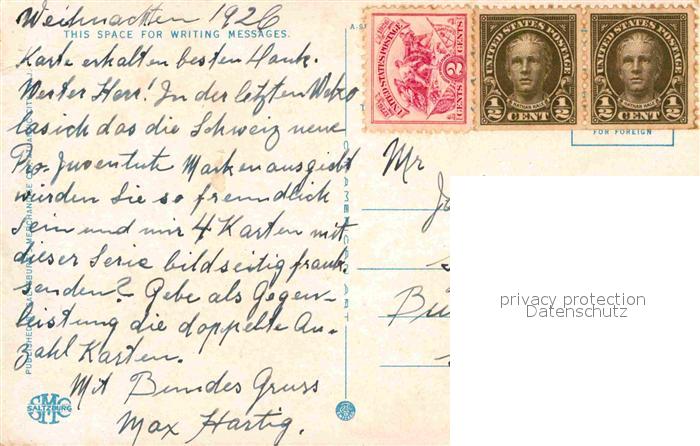 Weihnachten 1926
THIS SPACE FOR WRITING MESSAGES.
Karte erhalten besten Dank.
Werter Herr! In der letzten
las ich das die Schweiz neue
Pro-Juventute Marken ausgiebt
würden Sie so freundlich
sein und mir 4 Karten mit
dieser Serie bildseitig frank
senden? Gebe als Gegen-
leistung die doppelte An-
zahl Karten.
Mit Bundes Gruss
Max Hartig.
SALTZBURG
UNITED STATES POSTAGE
2 CENTS 2
UNITED STATES POSTAGE
NATHAN HALE
1/2 CENT 1/2
UNITED STATES POSTAGE
NATHAN HALE
1/2 CENT 1/2
FOR FOREIGN
Mr
privacy protection
Datenschutz